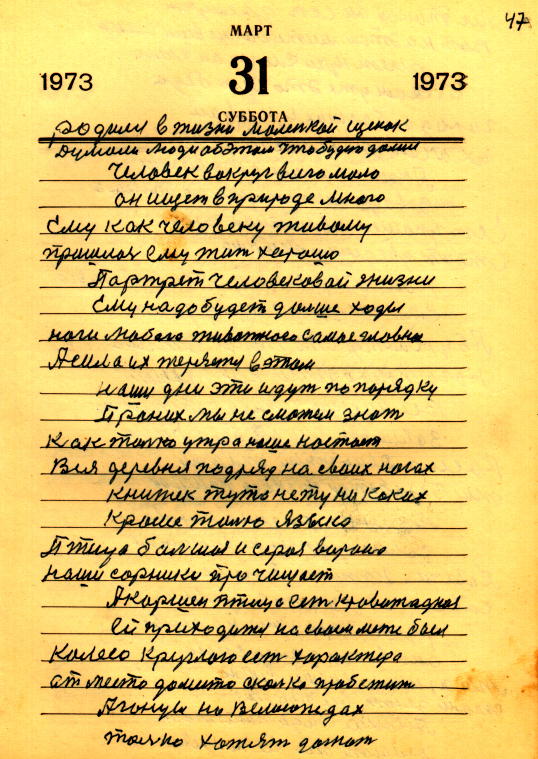 47
МАРТ
1973 31 1973
СУББОТА
родился в жизни щенок
Думали люди об этом что будто дальше
Человек вокруг всего мало
он ищет в природе много
Ему как человеку живому
пришлося Ему жит харашо
Партрет человековай жизни
Ему надо будет дальше ходы
ноги любого животного самое главна
А сила их теряется в этом
наши дни эти идут по порядку
Праних мы не сможем знат
Как только утра наше настает
Вся деревня подряд на своих ногах
книжек тута нету на каких
Кроме толко Языка
Птица балшая и серая варана
наши сорники про чищает
А коршен птица ест кроважадная
Ей приходится на своем мете
Колесо Круглаго ест характера
ат место до место сколко пробежит
Агонщик на Велосипедах
толко хотят догнат